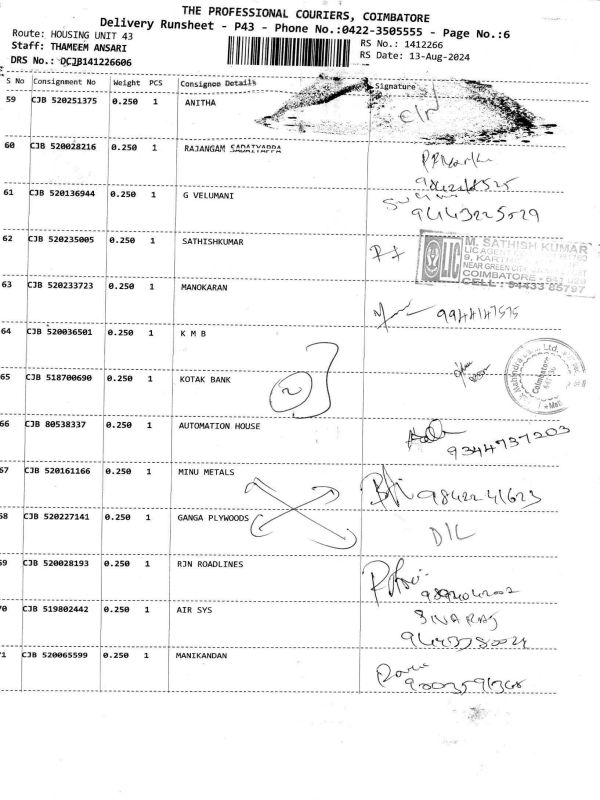 THE PROFESSIONAL COURIERS, COIMBATORE
Delivery Runsheet - P43 - Phone No.:0422-3505555 - Page No.:6
Route: HOUSING UNIT 43
RS No.: 1412266
Staff: THAMEEM ANSARI
RS Date: 13-Aug-2024
DRS No.: DCJB141226606
S No Consignment No Weight PCS Consignee Details Signature
59 CJB 520251375 0.250 1 ANITHA
60 CJB 520028216 0.250 1 RAJANGAM SADAIYAPPA
61 CJB 520136944 0.250 1 G VELUMANI
9443225029
62 CJB 520235005 0.250 1 SATHISHKUMAR
M. SATHISH KUMAR
LIC AGENT
LIC
NEAR GREEN CITY
COIMBATORE
CELL : 94433 85797
63 CJB 520233723 0.250 1 MANOKARAN
64 CJB 520036501 0.250 1 K M B
65 CJB 518700690 0.250 1 KOTAK BANK
2
Coimbatore
66 CJB 80538337 0.250 1 AUTOMATION HOUSE
9344737203
67 CJB 520161166 0.250 1 MINU METALS
9842241623
68 CJB 520227141 0.250 1 GANGA PLYWOODS
D/L
69 CJB 520028193 0.250 1 RJN ROADLINES
70 CJB 519802442 0.250 1 AIR SYS
SIVARAJ
71 CJB 520065599 0.250 1 MANIKANDAN